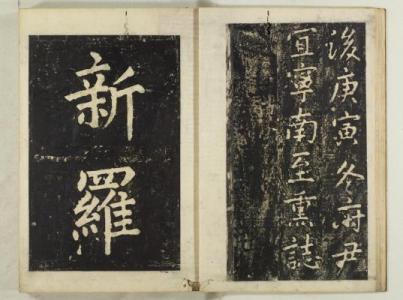 後庚寅冬府尹
宜寧南至熏誌
新羅